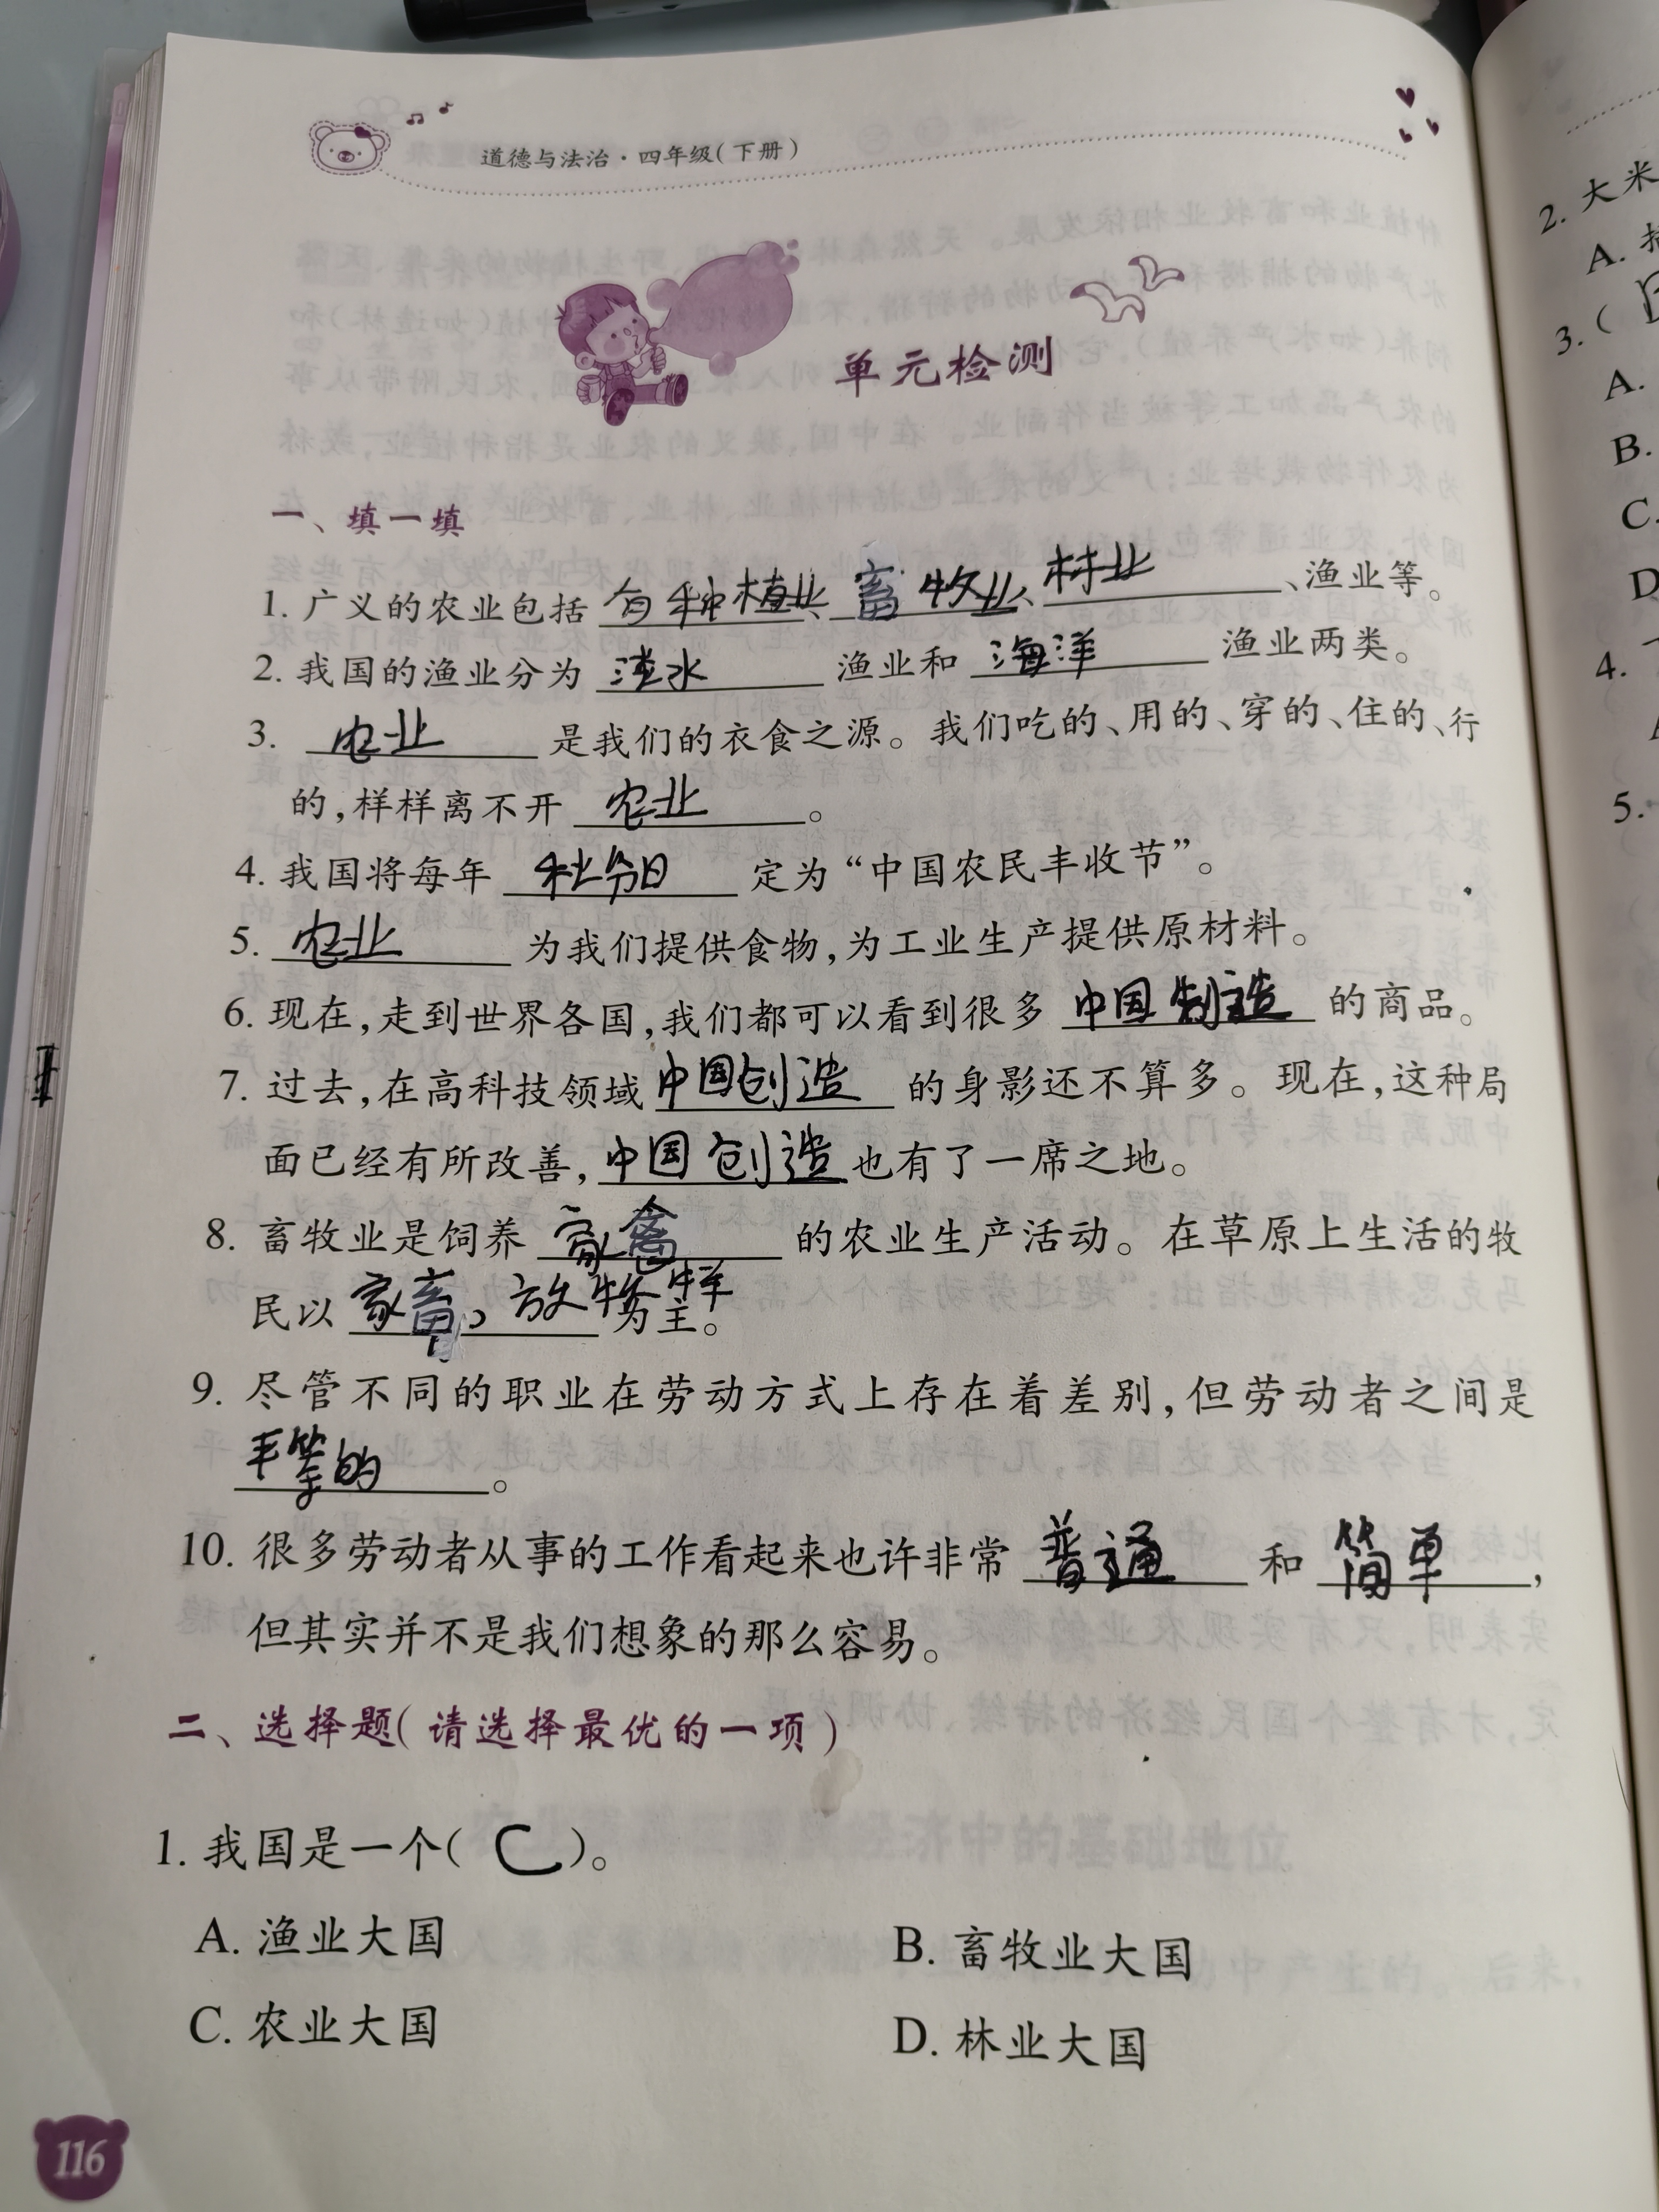 道德与法治·四年级(下册)
单元检测
一、填一填
1. 广义的农业包括 有种植业、畜牧业、林业、渔业等。
2. 我国的渔业分为 淡水 渔业和 海洋 渔业两类。
3. 农业 是我们的衣食之源。我们吃的、用的、穿的、住的、行
的,样样离不开 农业。
4. 我国将每年 秋分日 定为“中国农民丰收节”。
5. 农业 为我们提供食物,为工业生产提供原材料。
6. 现在,走到世界各国,我们都可以看到很多 中国制造 的商品。
7. 过去,在高科技领域 中国创造 的身影还不算多。现在,这种局
面已经有所改善,中国创造 也有了一席之地。
8. 畜牧业是饲养 家禽 的农业生产活动。在草原上生活的牧
民以 家畜、放牧 为主。
9. 尽管不同的职业在劳动方式上存在着差别,但劳动者之间是
平等的。
10. 很多劳动者从事的工作看起来也许非常 普通 和 简单,
但其实并不是我们想象的那么容易。
二、选择题(请选择最优的一项)
1. 我国是一个( C )。
A. 渔业大国 B. 畜牧业大国
C. 农业大国 D. 林业大国
116
2. 大米
A.
3. (
A.
B.
C.
D
4.
5.